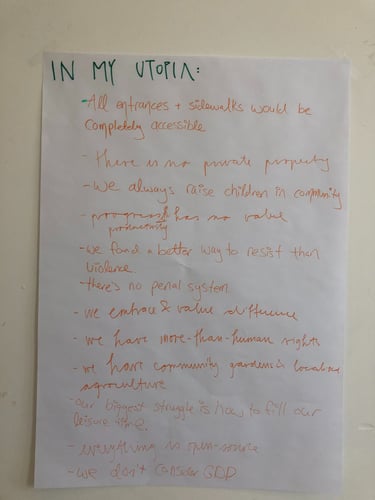 IN MY UTOPIA:
- All entrances + sidewalks would be
completely accessible
- there is no private property
- We always raise children in community
- progress has no value
productivity
- we found a better way to resist than
violence.
- there's no penal system
- we embrace & value difference
- we have more-than-human rights
- we have community gardens & localised
agroculture
- our biggest struggle is how to fill our
leisure time.
- everything is open-source
- we don't consider GDP